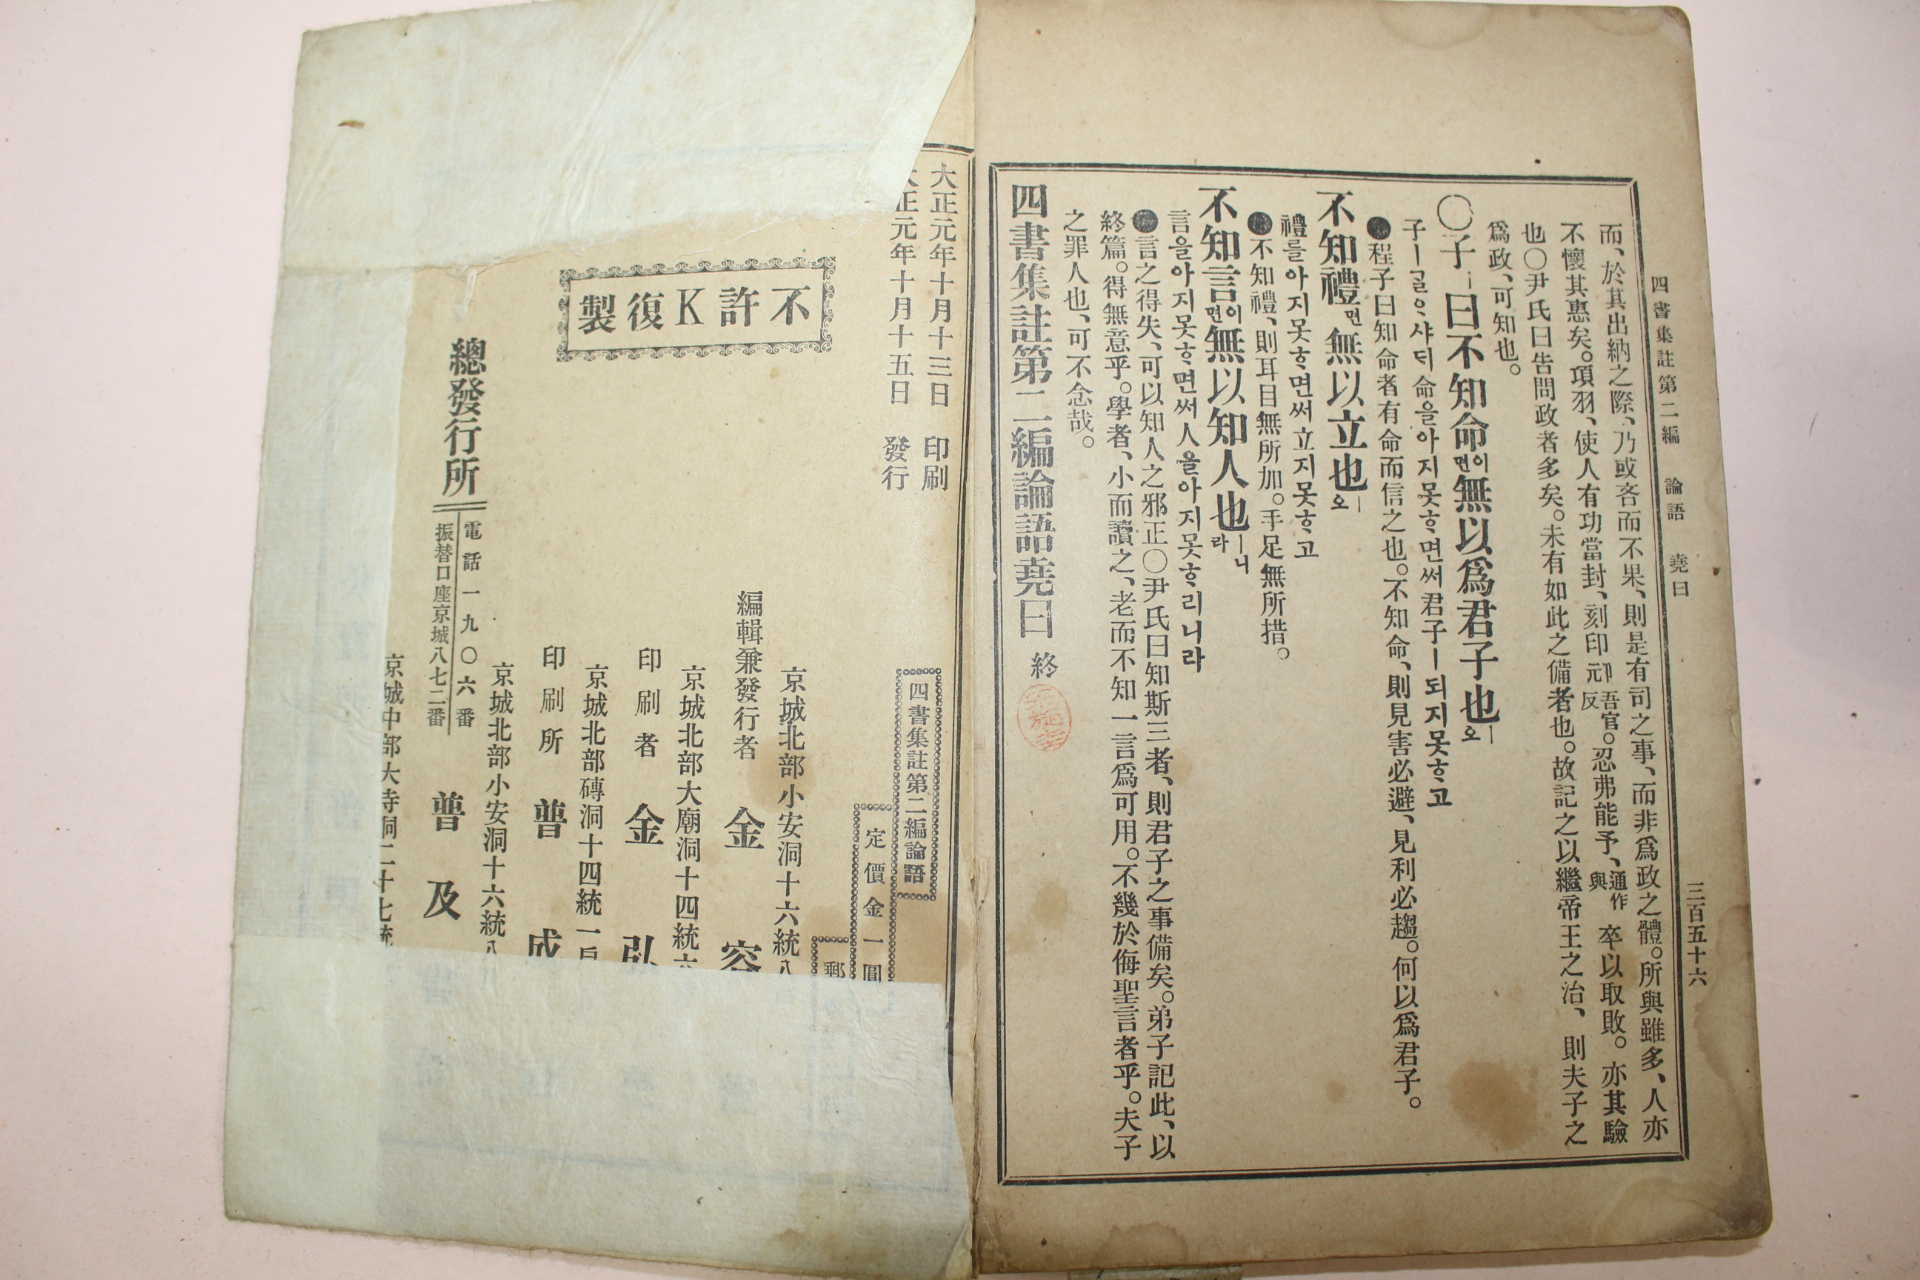 四書集註第二編 論語 堯曰 三百五十六
而、於其出納之際、乃或吝而不果、則是有司之事、而非爲政之體。所與雖多、人亦
不懷其惠矣。項羽、使人有功當封、刻印刓吾官反。忍弗能予、通作與 卒以取敗。亦其驗
也〇尹氏曰告問政者多矣。未有如此之備者也。故記之以繼帝王之治、則夫子之
爲政、可知也。
〇子ㅣ曰不知命이면無以爲君子也ㅣ오
子ㅣᄀᆞᆯᄋᆞ샤ᄃᆡ命을아지못ᄒᆞ면써君子ㅣ되지못ᄒᆞ고
程子曰知命者有命而信之也。不知命、則見害必避、見利必趨。何以爲君子。
不知禮면無以立也ㅣ오
禮를아지못ᄒᆞ면써立지못ᄒᆞ고
不知禮、則耳目無所加。手足無所措。
不知言이면無以知人也ㅣ니라
言을아지못ᄒᆞ면써人을아지못ᄒᆞ리니라
言之得失、可以知人之邪正〇尹氏曰知斯三者、則君子之事備矣。弟子記此、以
終篇。得無意乎。學者、小而讀之、老而不知一言爲可用。不幾於侮聖言者乎。夫子
之罪人也、可不念哉。
四書集註第二編論語堯曰 終
大正元年十月十三日 印刷
大正元年十月十五日 發行
四書集註第二編論語
定價金一圓
郵
不許K復製
京城北部小安洞十六統八
編輯兼發行者 金容
京城北部大廟洞十四統六
印刷者 金弘
京城北部磚洞十四統一戶
印刷所 普成
京城北部小安洞十六統八
總發行所
電話一九〇六番
振替口座京城八七二番
普及
京城中部大寺洞二十七統